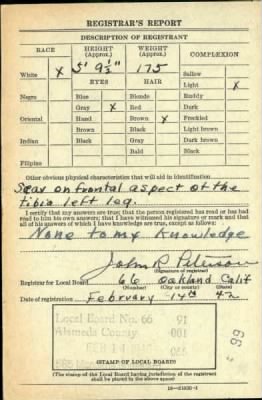 REGISTRAR'S REPORT
DESCRIPTION OF REGISTRANT
RACE HEIGHT (Approx.) WEIGHT (Approx.) COMPLEXION
White X 5' 9½" 175 Sallow
EYES HAIR Light X
Negro Blue Blonde Ruddy
Gray X Red Dark
Oriental Hazel Brown X Freckled
Brown Black Light brown
Indian Black Gray Dark brown
Bald Black
Filipino
Other obvious physical characteristics that will aid in identification
Scar on frontal aspect of the
tibia left leg.
I certify that my answers are true; that the person registered has read or has had
read to him his own answers; that I have witnessed his signature or mark and that
all of his answers of which I have knowledge are true, except as follows:
None to my Knowledge
John R Peterson
(Signature of registrar)
Registrar for Local Board 66 Oakland Calif
(Number) (City or county) (State)
Date of registration February 14th 42
Local Board No. 66 91
Alameda County 001
FEB 14
(STAMP OF LOCAL BOARD)
(The stamp of the Local Board having jurisdiction of the registrant
shall be placed in the above space.)
66